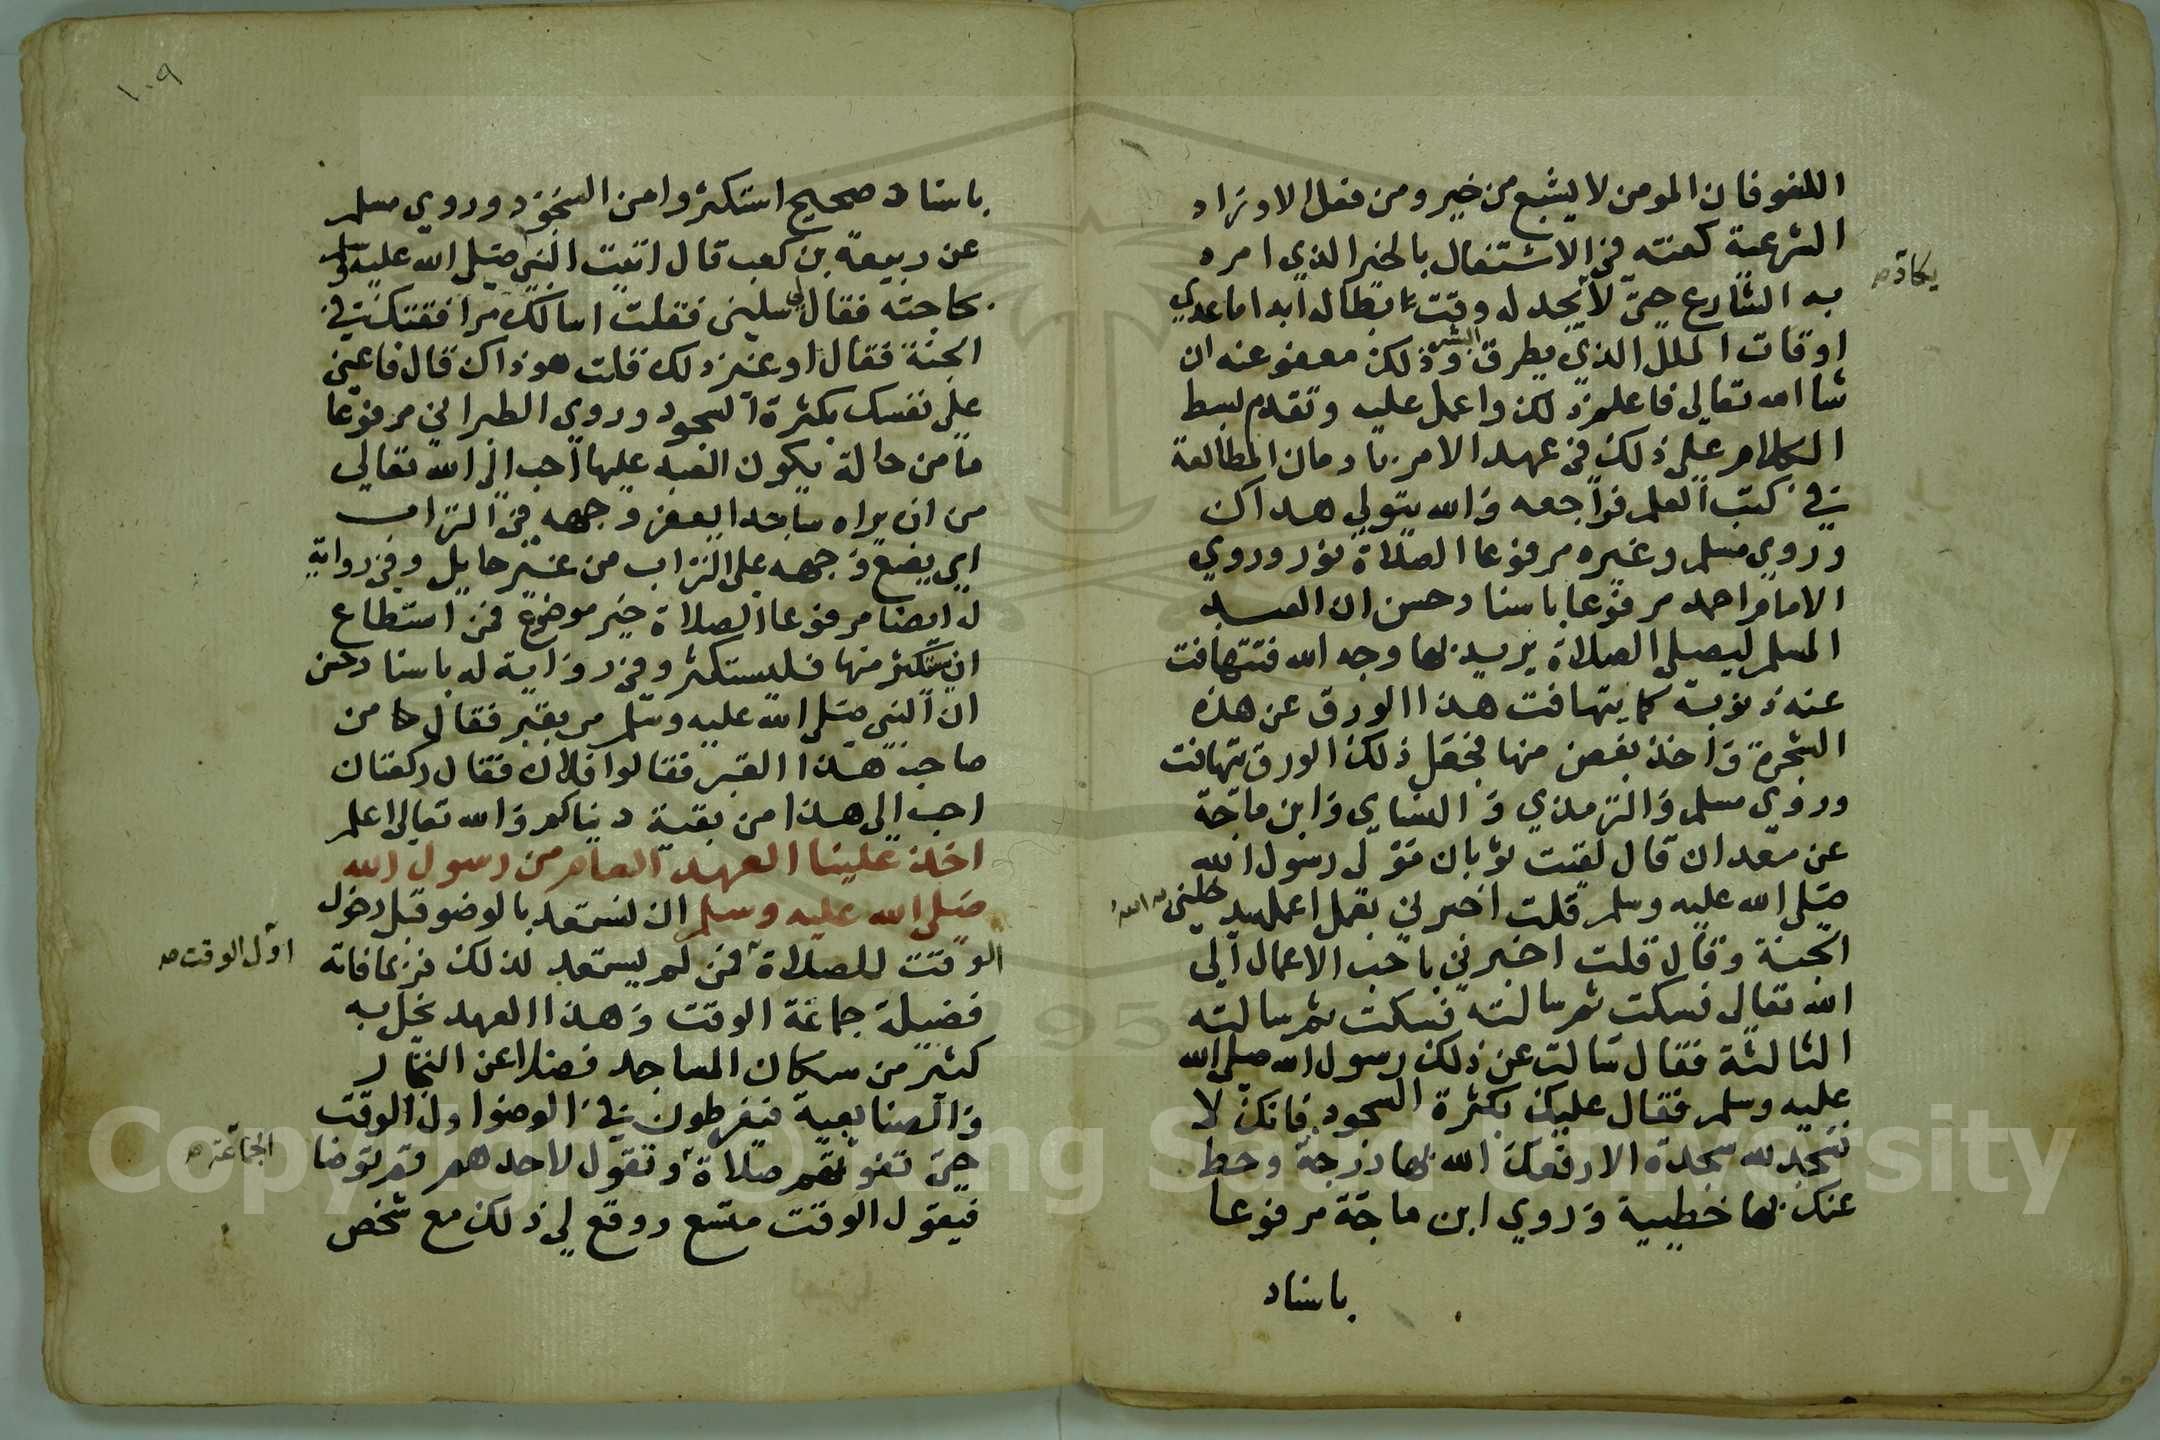 اللغو فان المومن لا يشبع من خير ومن فعل الاوراد
الشرعية كفته في الاشتغال بالخير الذي امره
به الشارع حتى لا يجد له وقت بطالة ابدا ما عدي
يكاد صح
اوقات الملل الذي يطرق البشر وذلك معفو عنه ان
شا الله تعالي فاعلم ذلك واعمل عليه وتقدم بسط
الكلام علي ذلك في عهد الامر بادمان المطالعة
في كتب العلم فراجعه والله يتولي هداك
وروي مسلم وغيره مرفوعا الصلاة نور وروي
الامام احمد مرفوعا باسناد حسن ان العبد
المسلم ليصلي الصلاة يريد بها وجه الله فتتهافت
عنه ذنوبه كما يتهافت هذا الورق عن هذه
الشجرة واخذ بغصن منها فجعل ذلك الورق يتهافت
وروي مسلم والترمذي والنساي وابن ماجة
عن معدان قال لقيت ثوبان مولي رسول الله
صلي الله عليه وسلم فقلت اخبرني بعمل اعمله يدخلني الله به
الجنة وقال قلت اخبرني باحب الاعمال الي
الله تعالي فسكت ثم سالته فسكت ثم سالته
الثالثة فقال سالت عن ذلك رسول الله صلي الله
عليه وسلم فقال عليك بكثرة السجود فانك لا
تسجد لله سجدة الا رفعك الله بها درجة وحط
عنك بها خطيية وروي ابن ماجة مرفوعا
باسناد
١٠٩
باسناد صحيح استكثروا من السجود وروي مسلم
عن ربيعة بن كعب قال اتيت النبي صلي الله عليه وسلم
بحاجته فقال لي سلني فقلت اسالك مرافقتك في
الجنة فقال او غير ذلك قلت هو ذاك قال فاعني
علي نفسك بكثرة السجود وروي الطبراني مرفوعا
ما من حالة يكون العبد عليها احب الي الله تعالي
من ان يراه ساجدا يعفر وجهه في التراب
اي يضع وجهه علي التراب من غير حايل وفي رواية
له ايضا مرفوعا الصلاة خير موضوع فمن استطاع
ان يستكثر منها فليستكثر وفي رواية له باسناد حسن
ان النبي صلي الله عليه وسلم مر بقبر فقال من
صاحب هذا القبر فقالوا فلان فقال ركعتان
احب الي هذا من بقية دنياكم والله تعالي اعلم
اخذ علينا العهد العام من رسول الله
صلي الله عليه وسلم ان نستعد بالوضو قبل دخول
الوقت للصلاة فمن لم يستعد لذلك فربما فاته
اول الوقت صح
فضيلة جماعة الوقت وهذا العهد يخل به
كثير من سكان المساجد فضلا عن التجار
والصنايعية فيفرطون في الوضو اول الوقت
حتي تفوتهم صلاة وتقول لاحدهم قم توضا
الجماعة صح
فيقول الوقت متسع ووقع لي ذلك مع شخص
Copyright © King Saud University